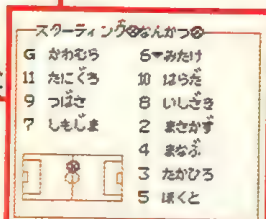 スターティング⚽なんかつ⚽
G かわむら
11 たにぐち
9 つばさ
7 しもじま
6 みたけ
10 はらだ
8 いしざき
2 まさかず
4 まなぶ
3 たかひろ
5 ほくと